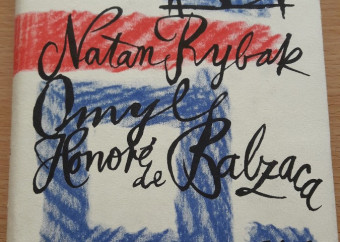 Natan Rybak
Omyl
Honoré
de Balzaca